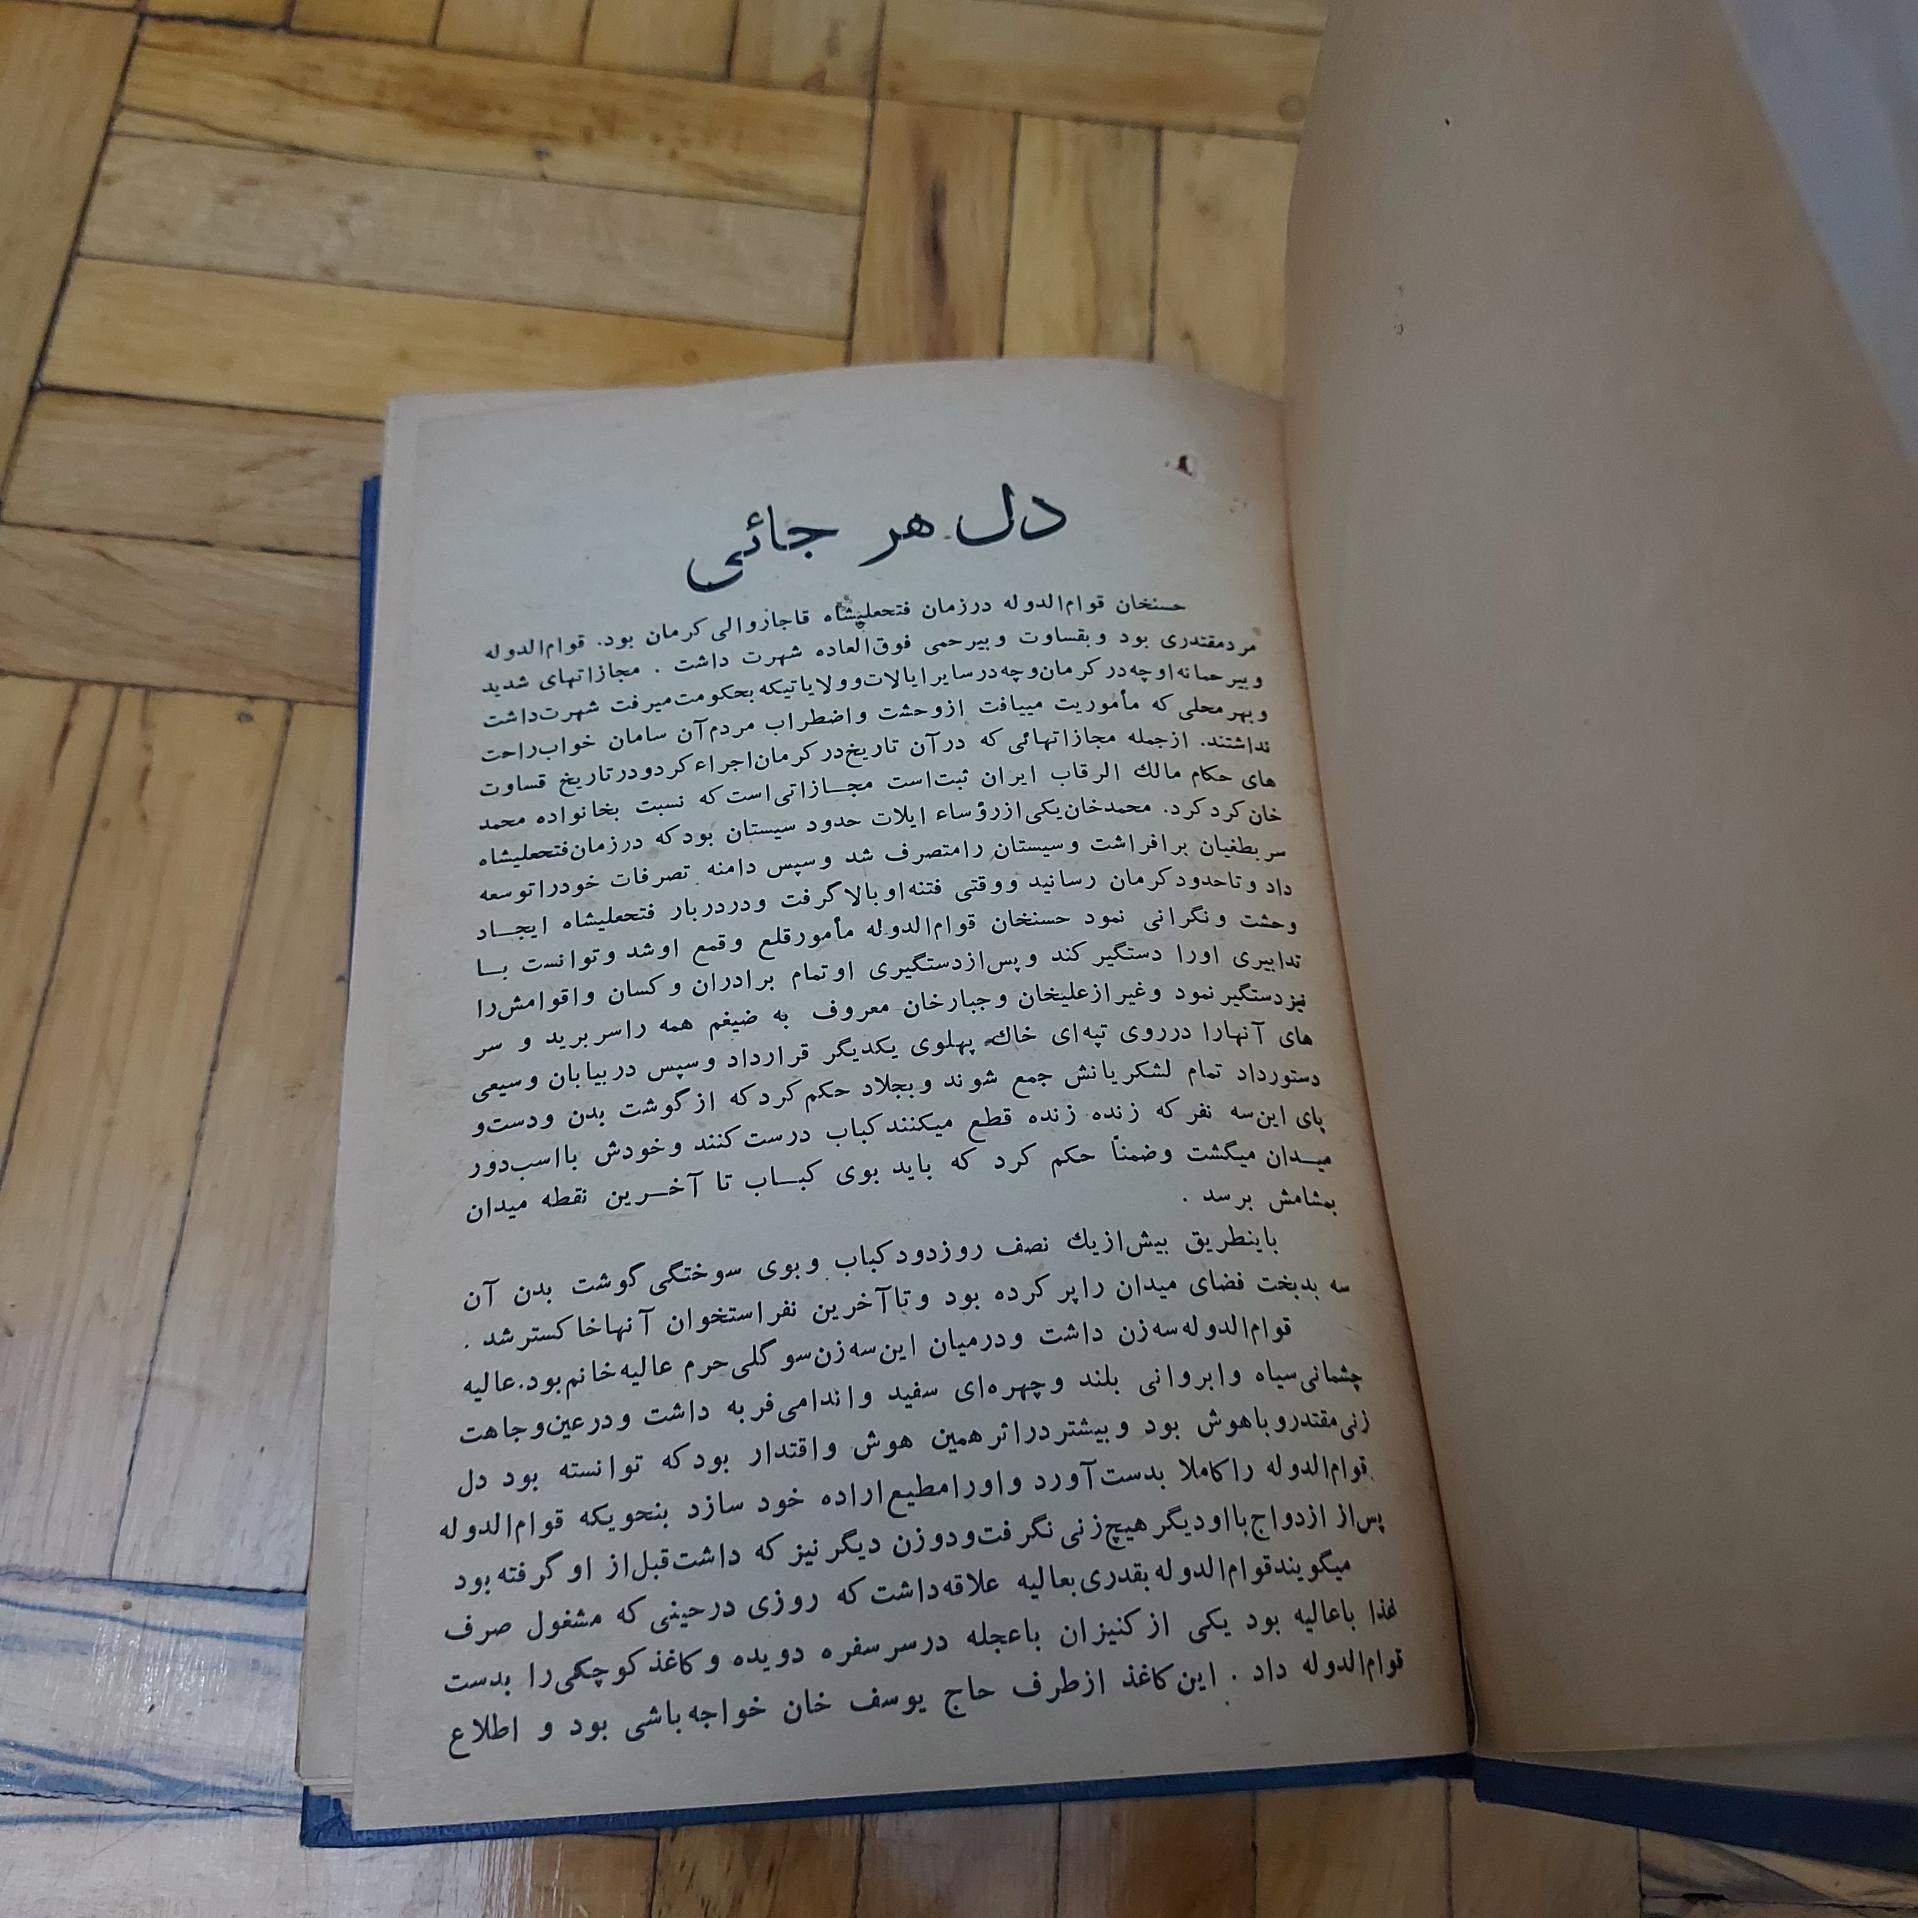 دل هر جائی
حسنخان قوام‌الدوله درزمان فتحعلیشاه قاجاروالی کرمان بود. قوام‌الدوله
مردمقتدری بود وبقساوت وبیرحمی فوق‌العاده شهرت داشت . مجازاتهای شدید
وبیرحمانه‌اوچه‌در کرمان‌وچه‌درسایرایالات‌وولایاتیکه بحکومت‌میرفت شهرت‌داشت
وبهرمحلی که مأموریت مییافت ازوحشت واضطراب مردم‌آن سامان خواب‌راحت
نداشتند. ازجمله مجازاتهائی که درآن تاریخ‌در کرمان‌اجراء کردودرتاریخ قساوت
های حکام مالك الرقاب ایران ثبت‌است مجـازاتی‌است‌که نسبت بخانواده محمد
خان کرد کرد. محمدخان‌یکی‌ازرؤساء ایلات حدود سیستان بودکه درزمان‌فتحعلیشاه
سربطغیان برافراشت وسیستان رامتصرف شد وسپس دامنه تصرفات خودراتوسعه
داد وتاحدودکرمان رسانید ووقتی فتنه‌اوبالاگرفت ودردربار فتحعلیشاه ایجـاد
وحشت ونگرانی نمود حسنخان قوام‌الدوله مأمورقلع وقمع اوشد وتوانست بـا
تدابیری اورا دستگیر کند وپس‌ازدستگیری اوتمام برادران وکسان واقوامش‌را
نیزدستگیر نمود وغیرازعلیخان وجبارخان معروف به ضیغم همه راسربرید و سر
های آنهارا درروی تپه‌ای خاك پهلوی یکدیگر قرارداد وسپس دربیابان وسیعی
دستورداد تمام لشکریانش جمع شوند وبجلاد حکم کردکه از گوشت بدن ودست‌و
پای این‌سه نفر که زنده زنده قطع میکنند کباب درست کنند وخودش بااسب‌دور
میـدان میگشت وضمناً حکم کرد که باید بوی کبـاب تا آخـرین نقطه میدان
بمشامش برسد .
باینطریق بیش‌ازیك نصف روزدود کباب وبوی سوختگی گوشت بدن آن
سه بدبخت فضای میدان راپر کرده بود وتاآخرین نفراستخوان آنهاخاکسترشد .
قوام‌الدوله‌سه‌زن داشت ودرمیان این‌سه‌زن‌سوگلی‌حرم عالیه‌خانم‌بود.عالیه
چشمانی‌سیاه وابروانی بلند وچهره‌ای سفید واندامی‌فربه داشت ودرعین‌وجاهت
زنی‌مقتدروباهوش بود وبیشتردراثرهمین هوش واقتدار بودکه توانسته بود دل
قوام‌الدوله راکاملا بدست‌آورد واورامطیع‌اراده خود سازد بنحویکه قوام‌الدوله
پس‌از ازدواج‌بااودیگرهیچ‌زنی نگرفت‌ودوزن دیگرنیز که داشت‌قبل‌از او گرفته بود
میگویندقوام‌الدوله بقدری‌بعالیه علاقه‌داشت که روزی درحینی که مشغول صرف
غذا باعالیه بود یکی ازکنیزان باعجله درسرسفره دویده وکاغذکوچکی‌را بدست
قوام‌الدوله داد . این‌کاغذ ازطرف حاج یوسف خان خواجه‌باشی بود و اطلاع